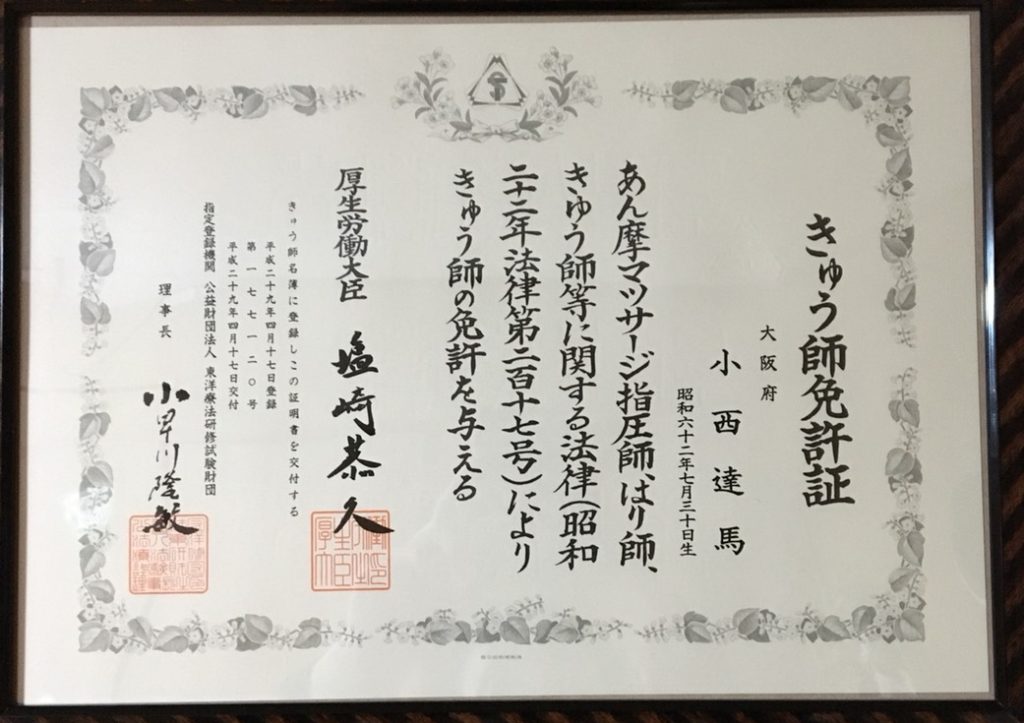 きゅう師免許証
大阪府
小西達馬
昭和六十二年七月三十日生
あん摩マツサージ指圧師、はり師、
きゆう師等に関する法律(昭和
二十二年法律第二百十七号)により
きゅう師の免許を与える
厚生労働大臣 塩崎恭久
きゅう師名簿に登録しこの証明書を交付する
平成二十九年四月十七日登録
第一七七一二〇号
平成二十九年四月十七日交付
指定登録機関 公益財団法人 東洋療法研修試験財団
理事長 小早川隆敏